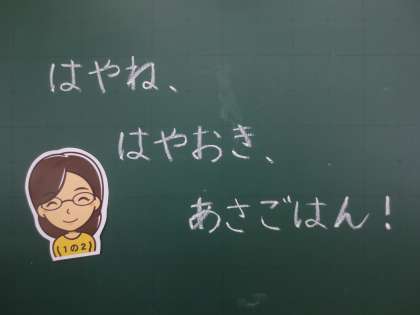 はやね、
はやおき、
あさごはん！
(1の2)